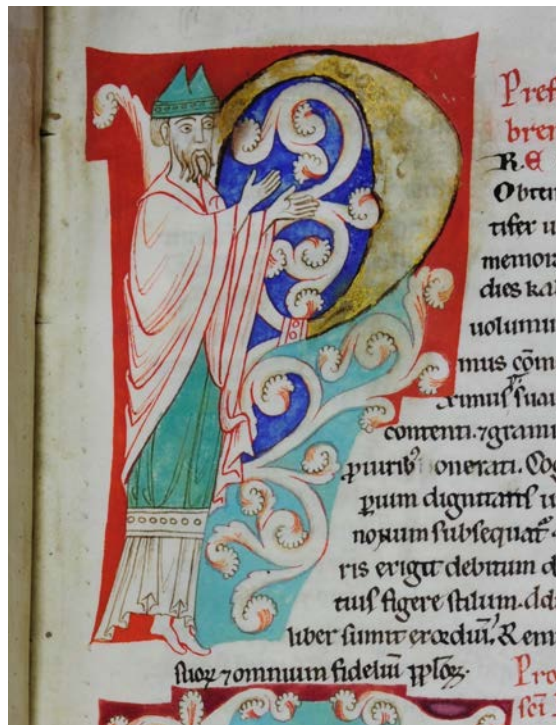 Pref
brev
R.E
Obten
tifer u
memor
dies kal
uolumu
mus cōm
ximus suau
contenti. ⁊grauı
pluribꝰ onerati. Quo
prium dignitatis u
noxium subsequat
ris erigit debitum d
tuis figere stilum. dd
liber sumit exordiū. R em
suoꝝ ⁊omnium fideliū
Pro
sci